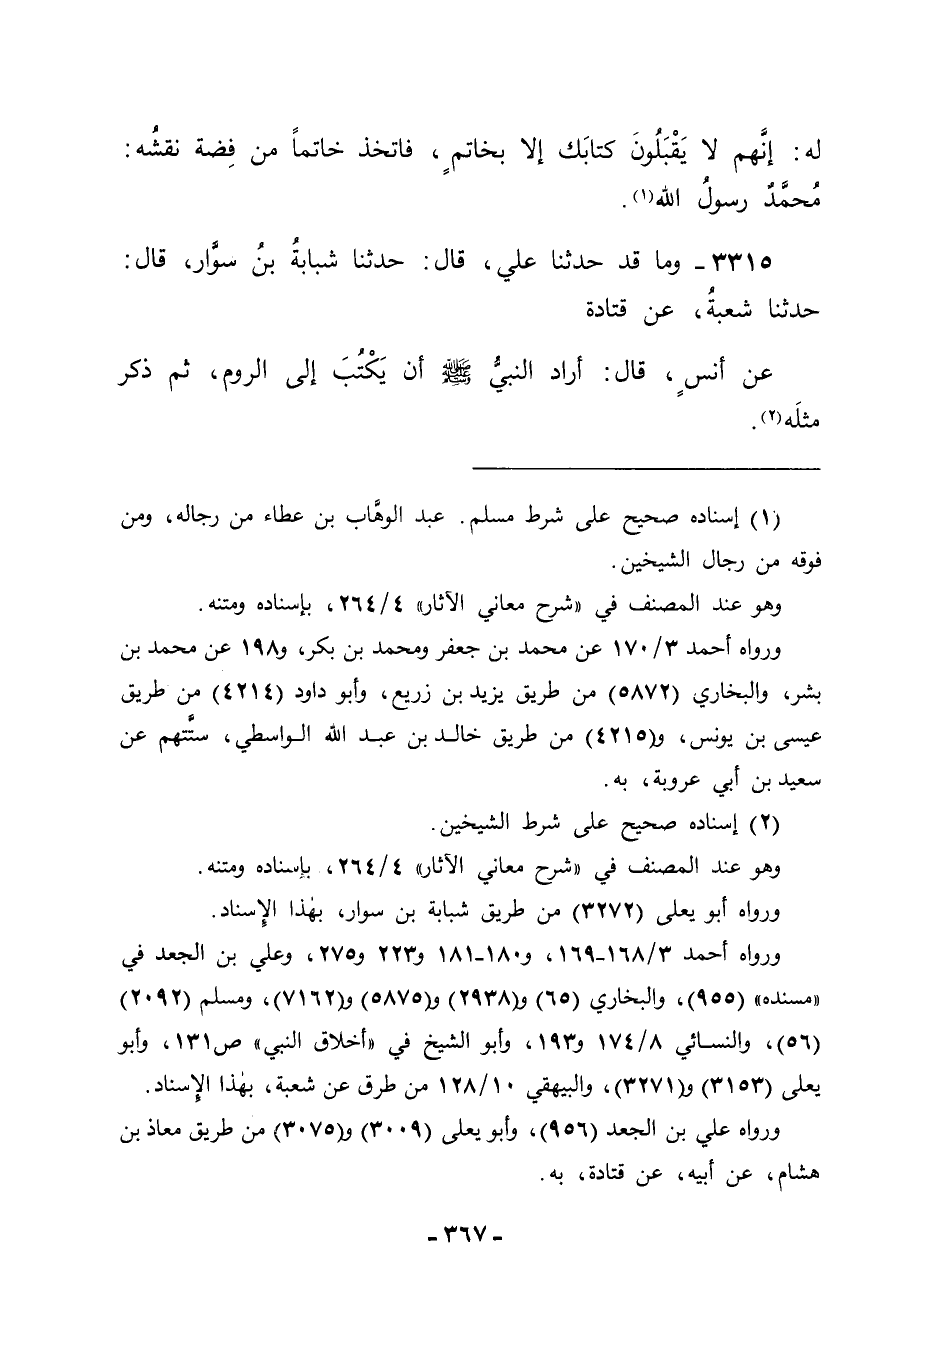 له: إنَّهم لا يَقْبَلُونَ كتابَك إلا بخاتمٍ، فاتخذ خاتماً من فِضة نقشُه:
مُحمَّدٌ رسولُ الله(١).
٣٣١٥ـ وما قد حدثنا علي، قال: حدثنا شبابةُ بنُ سوَّار، قال:
حدثنا شعبةُ، عن قتادة
عن أنسٍ، قال: أراد النبيُّ ﷺ أن يَكْتُبَ إلى الروم، ثم ذكر
مثلَه(٢).
(١) إسناده صحيح على شرط مسلم. عبد الوهَّاب بن عطاء من رجاله، ومن
فوقه من رجال الشيخين.
وهو عند المصنف في «شرح معاني الآثار» ٢٦٤/٤، بإسناده ومتنه.
ورواه أحمد ١٧٠/٣ عن محمد بن جعفر ومحمد بن بكر، و١٩٨ عن محمد بن
بشر، والبخاري (٥٨٧٢) من طريق يزيد بن زريع، وأبو داود (٤٢١٤) من طريق
عيسى بن يونس، و(٤٢١٥) من طريق خالد بن عبد الله الواسطي، ستَّتهم عن
سعيد بن أبي عروبة، به.
(٢) إسناده صحيح على شرط الشيخين.
وهو عند المصنف في «شرح معاني الآثار» ٢٦٤/٤، بإسناده ومتنه.
ورواه أبو يعلى (٣٢٧٢) من طريق شبابة بن سوار، بهٰذا الإسناد.
ورواه أحمد ١٦٨/٣ـ١٦٩، و١٨٠ـ١٨١ و٢٢٣ و٢٧٥، وعلي بن الجعد في
«مسنده» (٩٥٥)، والبخاري (٦٥) و(٢٩٣٨) و(٥٨٧٥) و(٧١٦٢)، ومسلم (٢٠٩٢)
(٥٦)، والنسائي ١٧٤/٨ و١٩٣، وأبو الشيخ في «أخلاق النبي» ص١٣١، وأبو
يعلى (٣١٥٣) و(٣٢٧١)، والبيهقي ١٢٨/١٠ من طرق عن شعبة، بهٰذا الإسناد.
ورواه علي بن الجعد (٩٥٦)، وأبو يعلى (٣٠٠٩) و(٣٠٧٥) من طريق معاذ بن
هشام، عن أبيه، عن قتادة، به.
ـ ٣٦٧ ـ